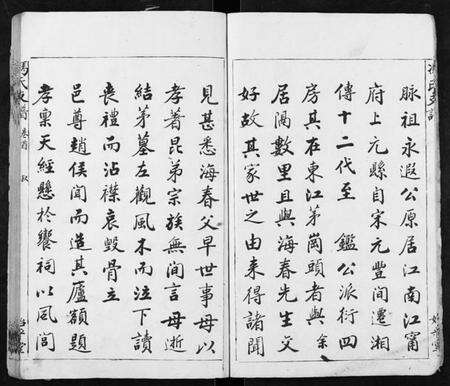 脈祖永遐公原居江南江甯
府上元縣自宋元豐間遷湘
傳十二代至 鑑公派衍四
房其在東江茅崗頭者與余
居隔數里且與海春先生交
好故其家世之由來得諸聞
見甚悉海春父早世事母以
孝著昆弟宗族無間言母逝
結茅墓左觀風木而泣下讀
喪禮而沾襟哀毀骨立
邑尊趙侯聞而造其廬額題
孝稟天經懸於饗祠以風閭
馮氏支譜 卷首 敘